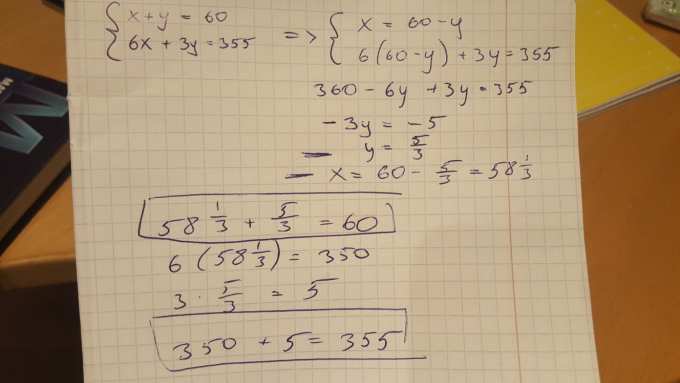 x + y = 60 => x = 60 - y
6x + 3y = 355 6(60-y) + 3y = 355
360 - 6y + 3y = 355
-3y = -5
y = 5/3
x = 60 - 5/3 = 58 1/3
58 1/3 + 5/3 = 60
6 (58 1/3) = 350
3 · 5/3 = 5
350 + 5 = 355